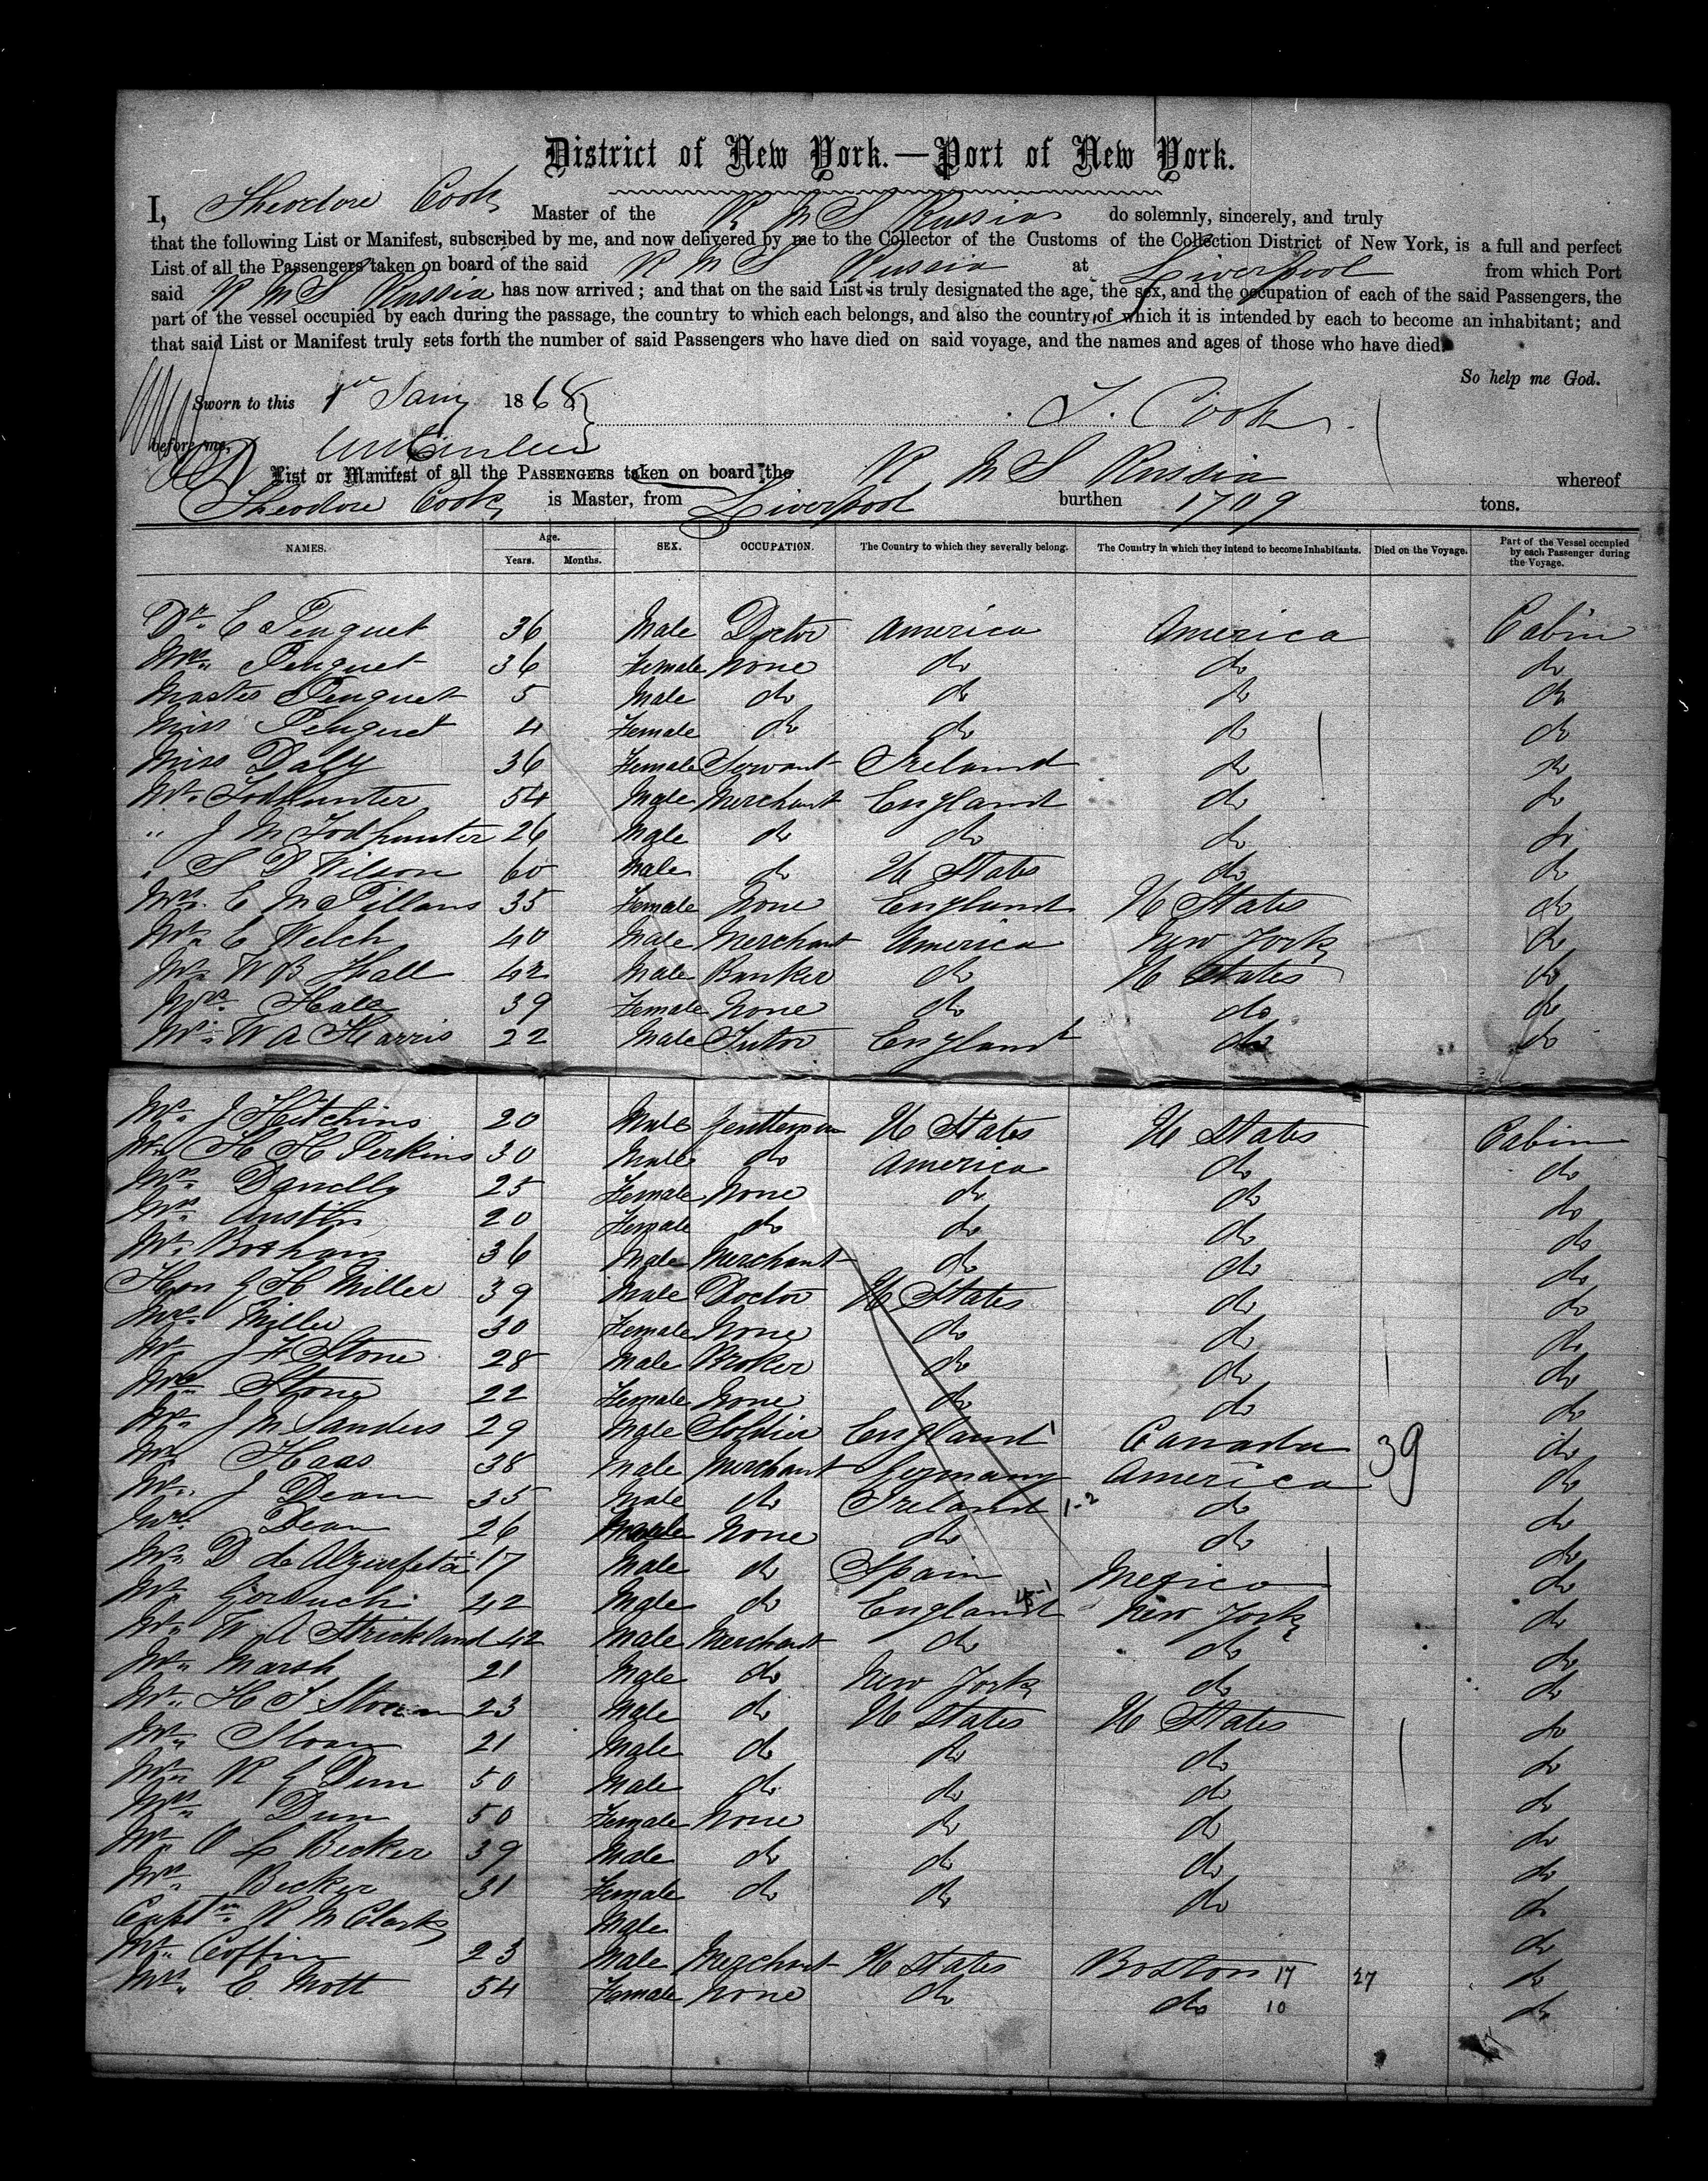 District of New York.—Port of New York.
I, Theodore Cook Master of the R M S Russia do solemnly, sincerely, and truly
that the following List or Manifest, subscribed by me, and now delivered by me to the Collector of the Customs of the Collection District of New York, is a full and perfect
List of all the Passengers taken on board of the said R M S Russia at Liverpool from which Port
said R M S Russia has now arrived; and that on the said List is truly designated the age, the sex, and the occupation of each of the said Passengers, the
part of the vessel occupied by each during the passage, the country to which each belongs, and also the country of which it is intended by each to become an inhabitant; and
that said List or Manifest truly sets forth the number of said Passengers who have died on said voyage, and the names and ages of those who have died.
So help me God.
Sworn to this 1st Jany 1868 T. Cook
before me,
List or Manifest of all the PASSENGERS taken on board the R M S Russia whereof
Theodore Cook is Master, from Liverpool burthen 1709 tons.
NAMES. Age. Years. Months. SEX. OCCUPATION. The Country to which they severally belong. The Country in which they intend to become Inhabitants. Died on the Voyage. Part of the Vessel occupied by each Passenger during the Voyage.
Dr. E Penguet 36 Male Doctor America America Cabin
Mrs. Penguet 36 Female None do do do
Master Penguet 5 Male do do do do
Miss Penguet 4 Female do do do do
Miss Daly 36 Female Servant Ireland do do
Mr. Todhunter 54 Male Merchant England do do
" J M Todhunter 26 Male do do do do
" S D Wilson 60 Male do U States do do
Mrs. E McPillans 35 Female None England U States do
Mr. E Welch 40 Male Merchant America New York do
Mr. W B Hall 42 Male Banker do U States do
Mrs. Hall 39 Female None do do do
Mr. W A Harris 22 Male Tutor England do do
Mr. J Hitchins 20 Male Gentleman U States U States Cabin
Mr. H H Perkins 30 Male do America do do
Mrs. Donelly 25 Female None do do do
Mrs. Austin 20 Female do do do do
Mr. 36 Male Merchant do do do
Hon G H Miller 39 Male Doctor U States do do
Mrs. Miller 30 Female None do do do
Mr. J H Stone 28 Male Broker do do do
Mrs. Stone 22 Female None do do do
Mr. J M Sanders 29 Male Soldier England 1 Canada 39 do
Mr. Haas 38 Male Merchant Germany America do
Mr. J Dean 35 Male do Ireland 1-2 do do
Mrs. Dean 26 None do do do
Mr. D de 17 Male do Spain Mexico do
Mr. 42 Male do England New York do
Mr. W A Strickland 42 Male Merchant do do do
Mr. Marsh 21 Male do New York do do
Mr. H S Sloan 23 Male do U States U States do
Mr. Sloan 21 Male do do do do
Mr. R G Dun 50 Male do do do do
Mrs. Dun 50 Female None do do do
Mr. O L Becker 39 Male do do do do
Mrs. Becker 31 Female do do do do
Captn. R M Clark Male do
Mr. Coffin 23 Male Merchant U States Boston 17 27 do
Mrs. E Mott 54 Female None do do 10 do